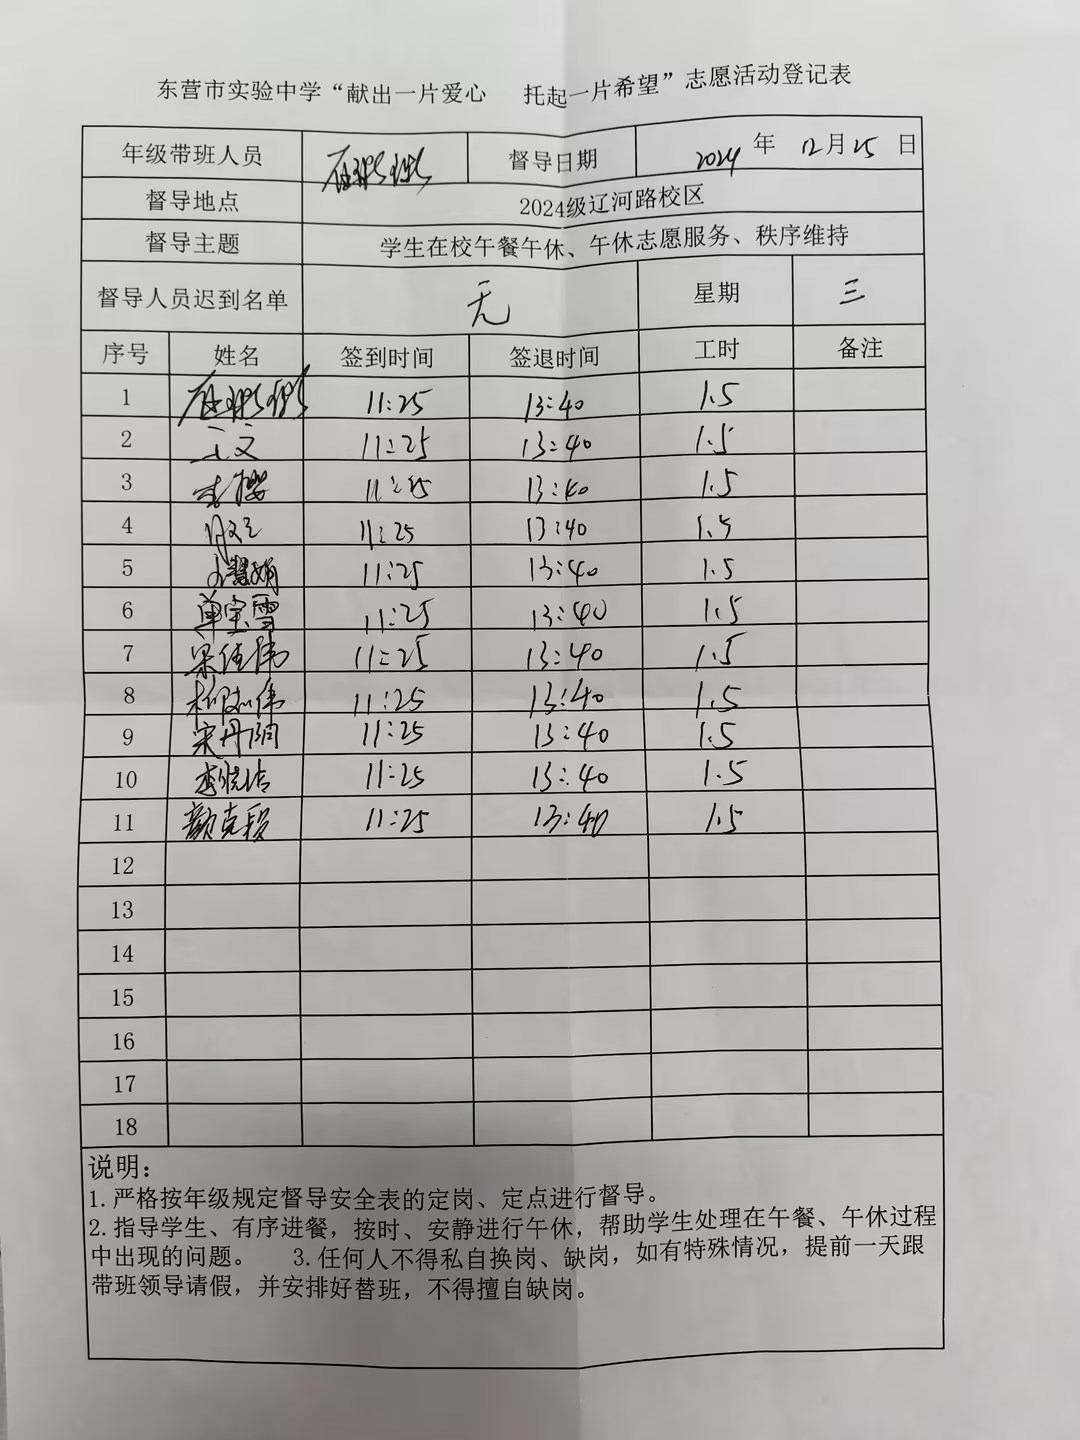 东营市实验中学“献出一片爱心 托起一片希望”志愿活动登记表
年级带班人员 督导日期 2024年12月25日
督导地点 2024级辽河路校区
督导主题 学生在校午餐午休、午休志愿服务、秩序维持
督导人员迟到名单 无 星期 三
序号 姓名 签到时间 签退时间 工时 备注
1 11:25 13:40 1.5
2 王文 11:25 13:40 1.5
3 李樱 11:25 13:40 1.5
4 11:25 13:40 1.5
5 慧娟 11:25 13:40 1.5
6 单宝雪 11:25 13:40 1.5
7 梁佳伟 11:25 13:40 1.5
8 伟 11:25 13:40 1.5
9 宋丹阳 11:25 13:40 1.5
10 李晓洁 11:25 13:40 1.5
11 颜克 11:25 13:40 1.5
12
13
14
15
16
17
18
说明:
1.严格按年级规定督导安全表的定岗、定点进行督导。
2.指导学生、有序进餐，按时、安静进行午休，帮助学生处理在午餐、午休过程
中出现的问题。 3.任何人不得私自换岗、缺岗，如有特殊情况，提前一天跟
带班领导请假，并安排好替班，不得擅自缺岗。